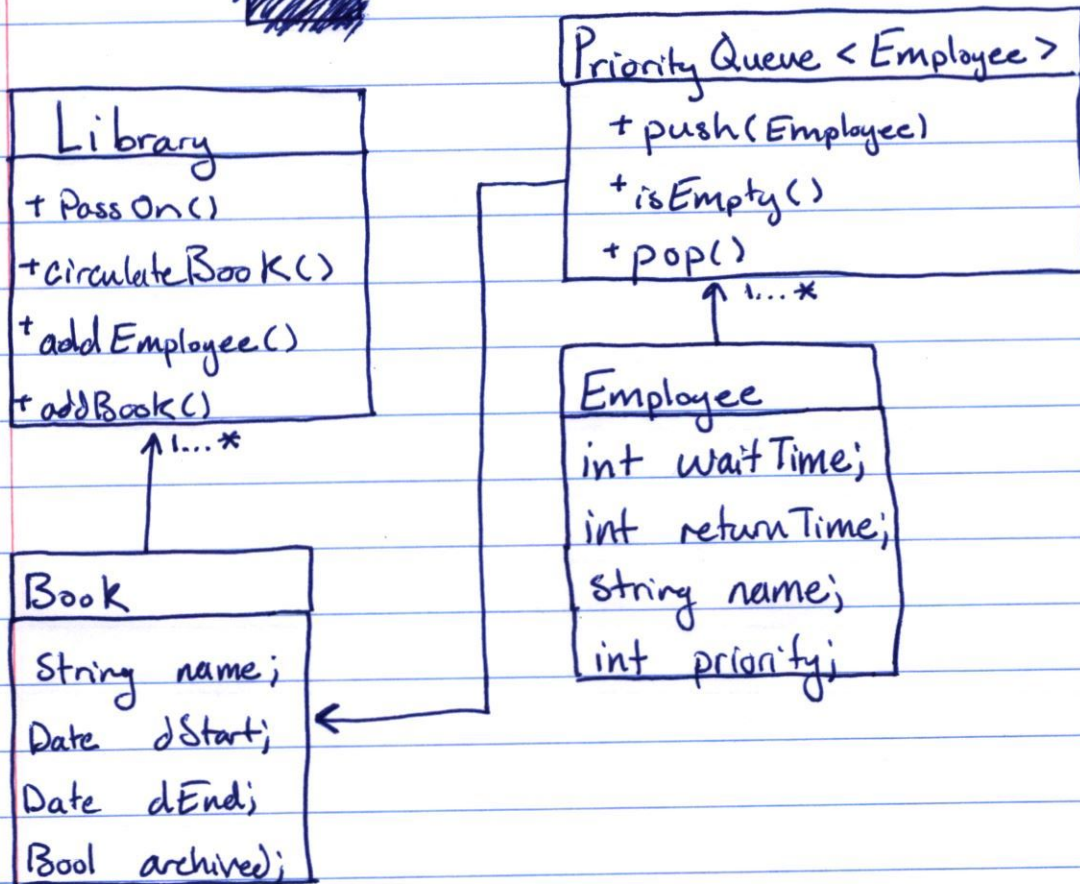 Library
+ PassOn()
+ circulateBook()
+ addEmployee()
+ addBook()
1...*
Book
String name;
Date dStart;
Date dEnd;
Bool archived;
Priority Queue < Employee >
+ push(Employee)
+ isEmpty()
+ pop()
1...*
Employee
int waitTime;
int returnTime;
string name;
int priority;